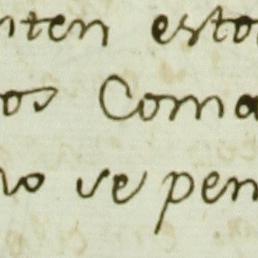 nten esto
os Coma
no se pen